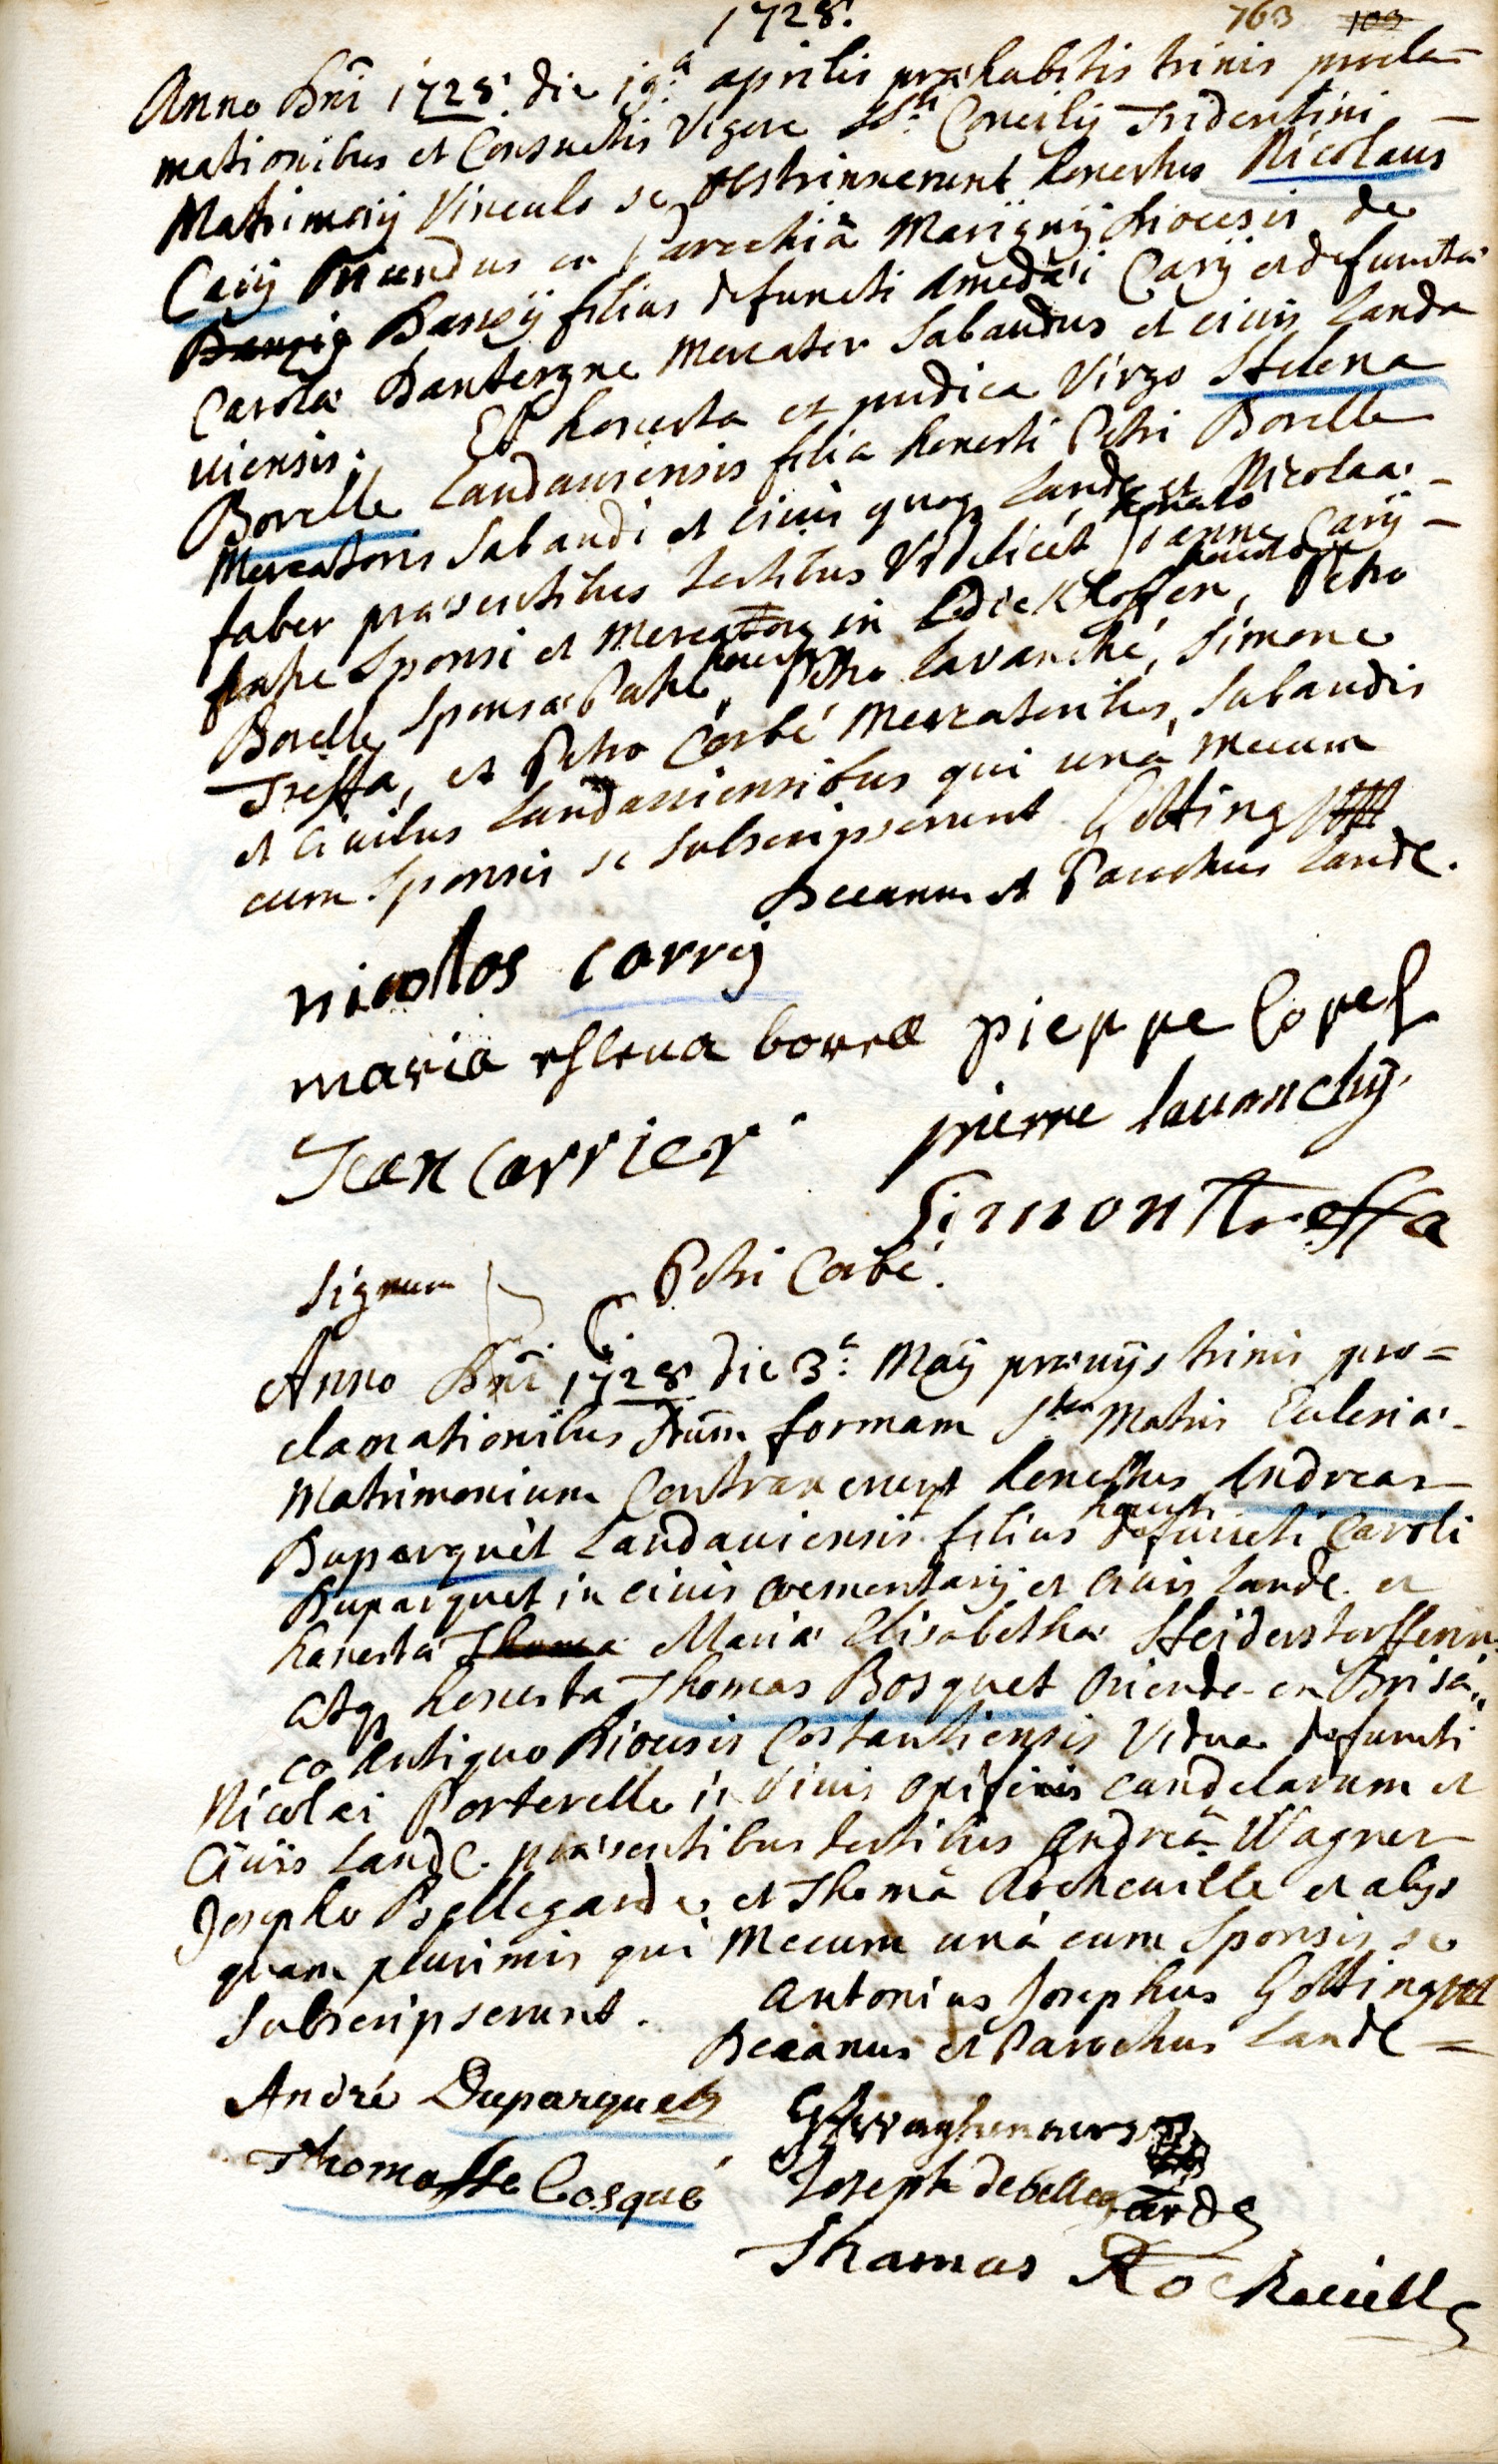 1728.
763 103
Anno Dnī 1728. die 19.ª aprilis præhabitis trinis procla-
mationibus et Consuetis Vigore SSti Concilij Tridentini -
Matrimonij Vinculo se obstrinxerunt honestus Nicolaus
Carij Oriundus ex Parochiâ Marignij Diocesis de
Dansig Dansij filius defuncti Amedæi Carij et defunctæ
Carolæ Dantergne Mercator Sabaudus et civis Landa
viensis. Et honesta et pudica Virgo Helena
Borelle Landaviensis filia honesti Petri Borelle
Mercatoris Sabaudi et civis quoq Landæ et Nicolaæ -
faber præsentibus testibus Videlicet honesto Joanne Carij -
fratre Sponsi et Mercatore in Edickhoffen, honesto Petro
Borelle Sponsæ Patre, honesto Petro Lavanché, Simone
Treffa, et Petro Corbé Mercatoribus, Sabaudis
et Civibus Landaviensibus qui unà mecum
cum Sponsis se subscripserunt Götting
Decanus et Parochus Landæ.
nicolos carrij
maria eslena borrel pierre borel
Jean Carrier pierre lauanchij
Simon Treffa
Signum Petri Corbé.
Anno Dnī 1728 die 3.ª Maij prævijs trinis pro=
clamationibus Scdum formam Stæ Matris Eclesiæ -
Matrimonium Contraxerunt honestus Andreas
Duparquèt Landaviensis filius honesti defuncti Caroli
Duparquet in vivis cæmentarij et Civis Landæ et
honestæ Thoma Mariæ Elisabethæ Heiderstorfferin
Atq honesta Thomas Bosquet Oriunda ex Brisa-
co Antiquo Diocesis Constantiensis Vidua defuncti
Nicolai Porterelle in Vivis opificis candelarum et
Civis Landæ præsentibus testibus Andreâ Wagner
Josepho Bellegarde et Thomâ Rocheuille et alijs
quam plurimis qui Mecum unà cum Sponsis se
Subscripserunt. Antonius Josephus Götting
Decanus et Parochus Landæ =
André Duparquets
Thomasse bosqué Joseph de bellegarde
Thomas Rocheuille